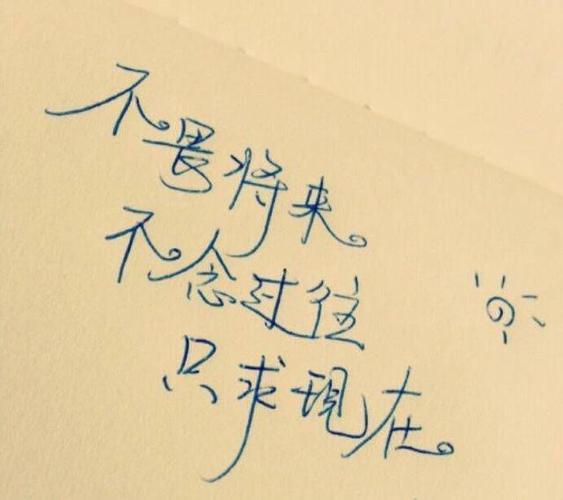 不畏将来
不念过往
只求現在